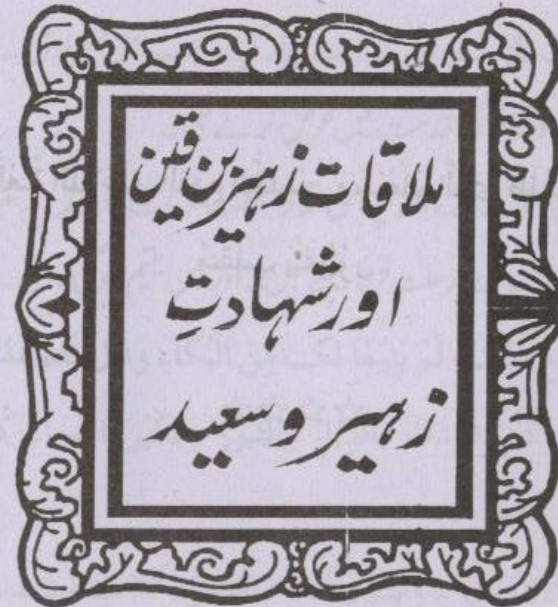 ملاقات زہیر بن قین
اور شہادتِ
زہیر و سعید